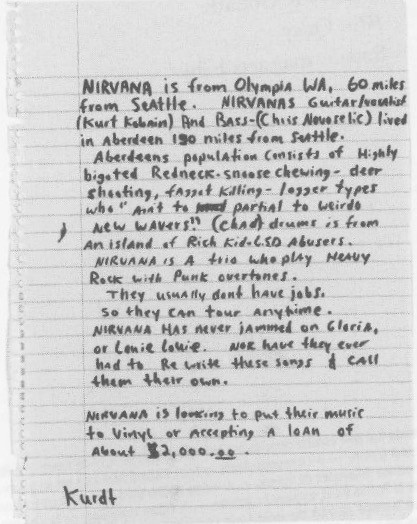 NIRVANA is from Olympia WA, 60 miles
from Seattle. NIRVANAS Guitar/vocalist
(Kurt Kobain) And Bass-(Chris Novoselic) lived
in Aberdeen 150 miles from Seattle.
Aberdeens population consists of Highly
bigoted Redneck-snoose chewing-deer
shooting, faggot killing-logger types
who "Aint to partial to weirdo
New WAVers!" (Chad) drums is from
An island of Rich Kid-LSD Abusers.
NIRVANA is A trio who play HEAVY
Rock with Punk overtones.
They usually dont have jobs.
So they can tour Anytime.
NIRVANA HAs never jammed on Gloria,
or Louie Louie. NOR have they ever
had to Re write these songs & CALL
them their own.
NIRVANA is looking to put their music
to Vinyl or Accepting A loAn of
About $2,000.00.
Kurdt